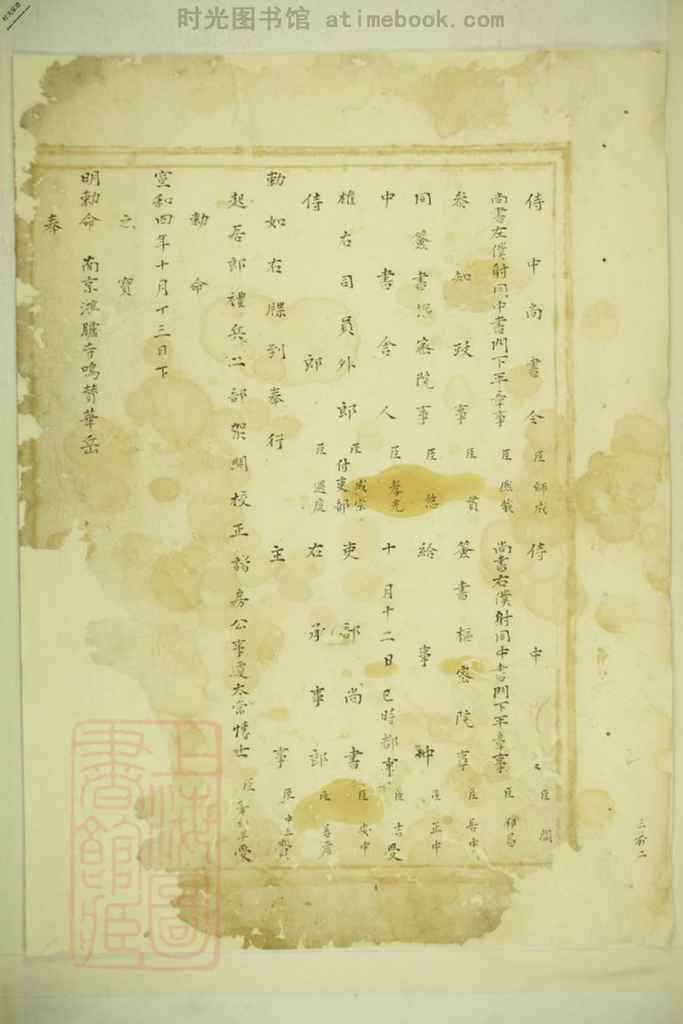 时光图书馆 atimebook.com
侍中尚書令 臣 師成 侍中 臣
尚書左僕射同中書門下平章事 臣 尚書右僕射同中書門下平章事 臣
參知政事 臣 貫 簽書樞密院事 臣 岳中
同簽書樞密院事 臣 給事中 臣 正中
中書舍人 臣 孝先 十月十二日巳時都事 臣 吉受
權右司員外郎 臣 成宗 付吏部 吏部尚書 臣 成中
侍郎 臣 過庭 右承事郎 臣
勅如右牒到奉行 主事 臣
起居郎禮兵二部架閣校正諸房公事太常博士 臣 受
勅命
宣和四年十月十三日下
之寶
明勅命 南京鴻臚寺鳴贊華岳
奉
上海圖書館藏